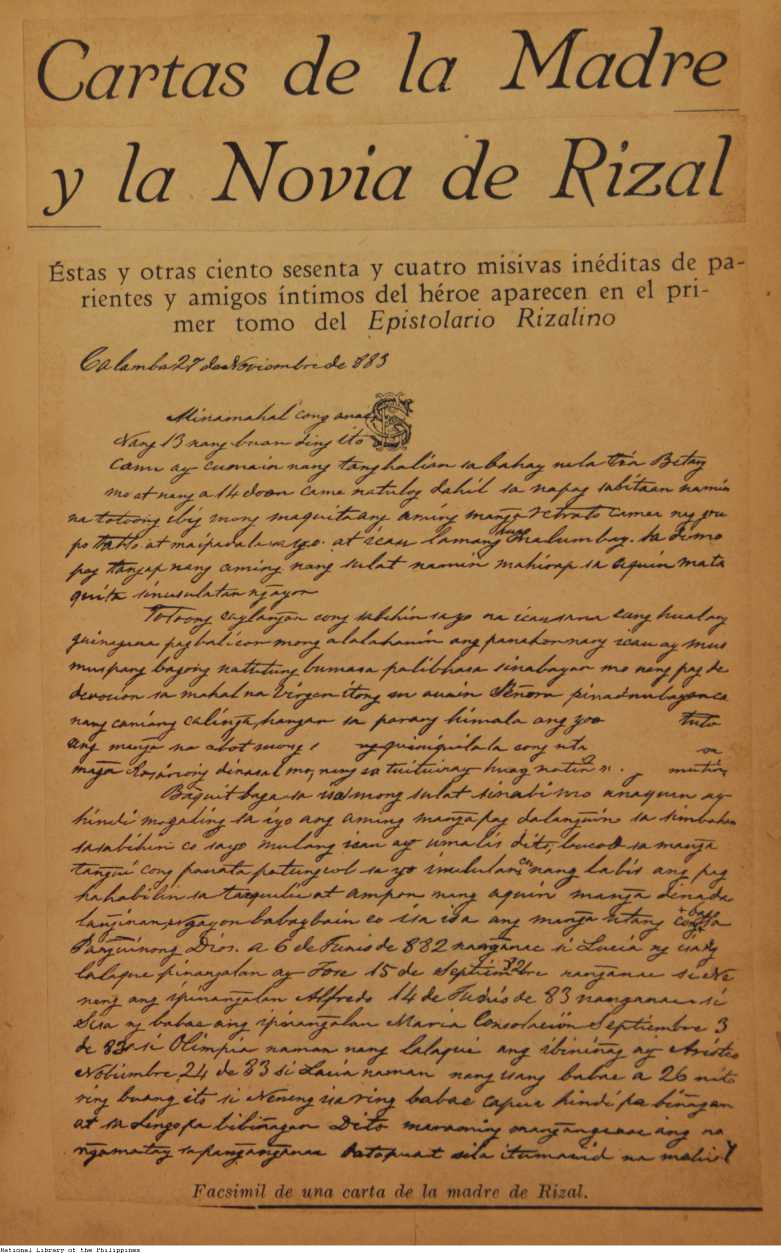 Cartas de la Madre
y la Novia de Rizal
Éstas y otras ciento sesenta y cuatro misivas inéditas de pa-
rientes y amigos íntimos del héroe aparecen en el pri-
mer tomo del Epistolario Rizalino
Calamba 27 de Noviembre de 883
Minamahal cong anac
Nang 13 nang buan ding ito
came ay cumain nang tanghalian sa bahay nela tia Betang
mo at nang a 14 doon came natulog dahil sa napag sabitaan namin
na totoong ebig mong maquita ang aming manga retrato camea nag
po at maipadala sa iyo. at icau lamang huag malumbay. sa dimo
pag tangap nang aming nang sulat namin mahirap sa aquin mata
quita sinusulatan ngayon
Totoong caylangan cong sabihin sa yo na icau sana cung hualang
guinagaua pagbalican mong alalahanin ang panahon nang icau ay mus
muspang bagong natutung bumasa palibhasa sinabayan mo nang pag de
devocion sa mahal na Virgen itong Señora
nang caniang calinga, hangan sa parang himala ang tuto
ang manga na abot
manga
Baquit baga sa isa mong sulat sinabi mo anaquen ay
hindi magaling sa iyo ang aming manga pag dalanguin sa simbahan
sasabihin co sayo mulang icau ay umalis dito, bucod sa manga
tangi cong panata patungcol sa yo nang labis ang pag
hahabilin sa at ampon nang aquin manga dinada
langinan, ngayon babagbain co isa isa ang manga
Panguinong Dios. a 6 de Junio de 882 nanganac si Lucia ng isang
lalaque pinangalan ay Jose 15 de Septiembre nanganac si Ne
neng ang ipinangalan Alfredo 14 de de 83 nanganac si
Sisa ng babae ang ipinangalan Maria Consolación Septiembre 3
de 83 si Olimpia naman nang lalaqui ang ibininag ay Aristeo
Nobiembre 24 de 83 si Lucia naman nang isang babae a 26 nito
ring buang ito si Neneng isa ring babae capua hindi pa binagan
at sa Lingo pa bibinagan Dito maraming manganganac ang na
ngamatay sa panganganac sila itumauid na
Facsimil de una carta de la madre de Rizal.
National Library of the Philippines